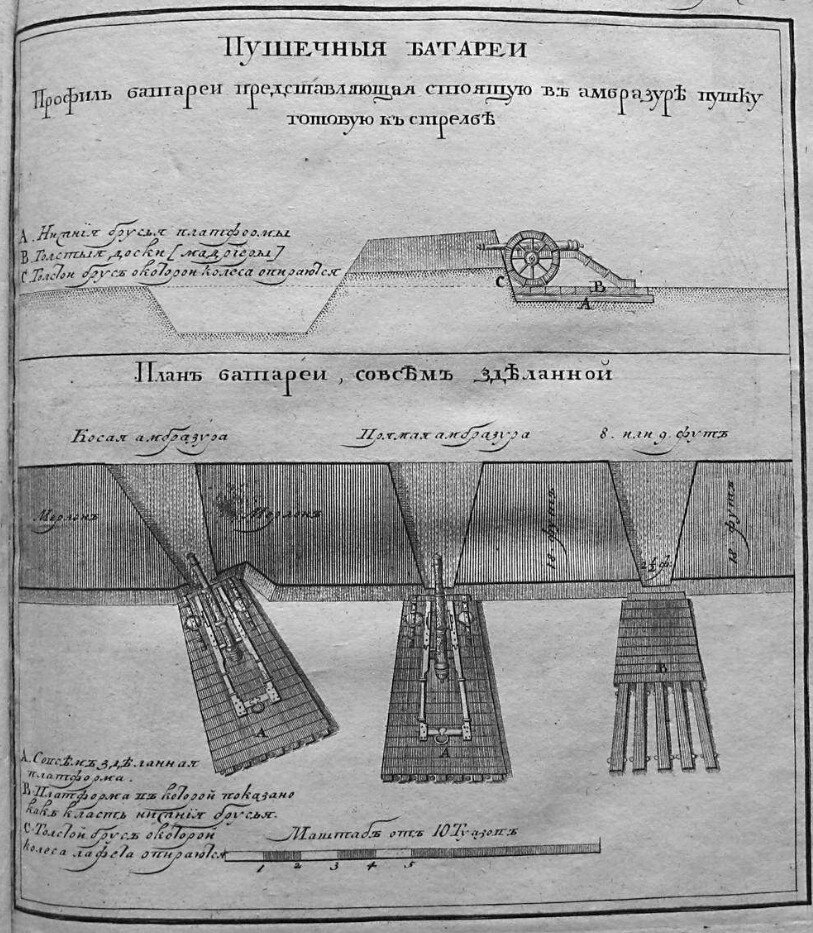 Пушечныя батареи
Профиль баттареи представляющая стоящую въ амбразурѣ пушку
готовую къ стрелбѣ
А. Нижнія брусья платформы
В. Толстыя доски [мадріеры]
С Толстой брусъ окоторой колеса опираются
С
В
А
Планъ баттареи, совсѣмъ здѣланной
Косая амбразура
Прямая амбразура
8. или 9. футъ
Мерлонъ
Мерлонъ
18 футъ
18 футъ
2½ ф.
В
А
А
А. Совсѣмъ здѣланная
платформа.
В. Платформа въ которой показано
какъ класть нижнія брусья.
С. Толстой брусъ окоторой
колеса лафета опираются
Маштабъ отъ 10 Туазовъ
1 2 3 4 5